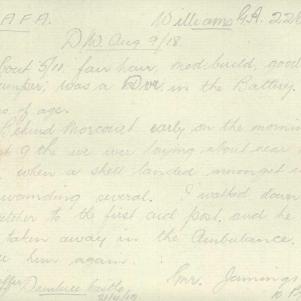 A.F.A. Williams G.A. 228
D.W. Aug 9/18.
bout 5/11. fair hair, med. build, good
umper, was a Dvr. in the Battery.
rs of age.
Behind Morcourt early on the morning
9 the we were laying about near
when a shell landed amongst
wounding several. I walked down
etcher to the first aid post. and he
taken away in the Ambulance.
e him again.
Dunluce Castle Jennings